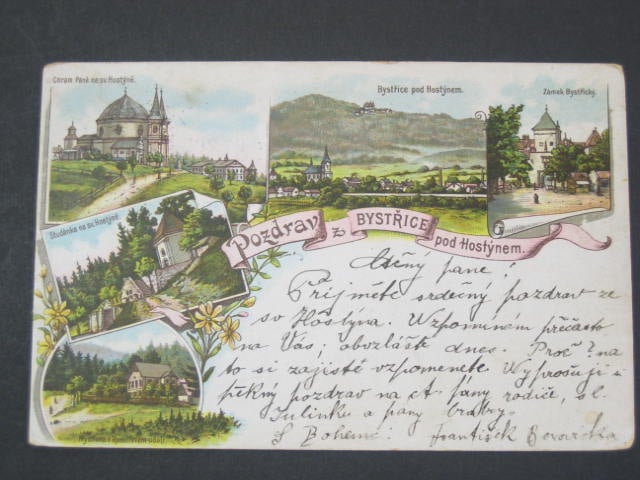 Chrám Páně na sv. Hostýně.
Bystřice pod Hostýnem.
Zámek Bystřický.
Studánka na sv. Hostýně.
Pozdrav z BYSTŘICE pod Hostýnem.
Ctěný pane!
Přijměte srdečný pozdrav ze
sv Hostýna. Wzpomínám přečasto
na Vás; obzlášte dnes. Proč? na
to si zajisté vzpomenete. Vyprošuji
pěkný pozdrav na ct. pány rodiče, sl.
Julinku a pány bratry.
S Bohem! František